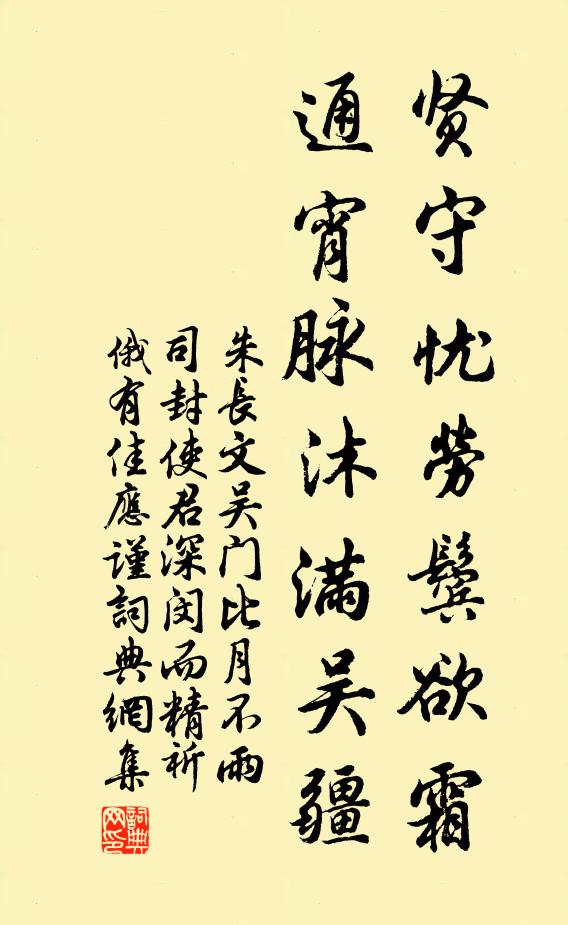 贤守忧劳鬓欲霜
通宵脉沐满吴疆
朱長文吴门比月不雨
司封使君深闵而精祈
俄有佳應谨詞典網集
詞典網印